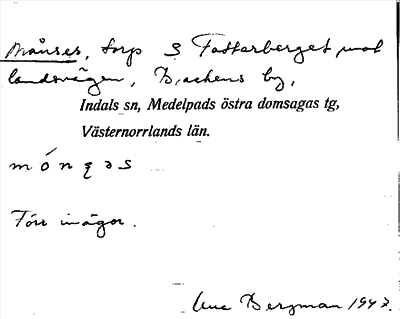 Månses, torp S Fattarberget mot
landsvägen, Backens by,
Indals sn, Medelpads östra domsagas tg,
Västernorrlands län.
mó n ǫ ə s
Förr inägor.
Bergman 1947.